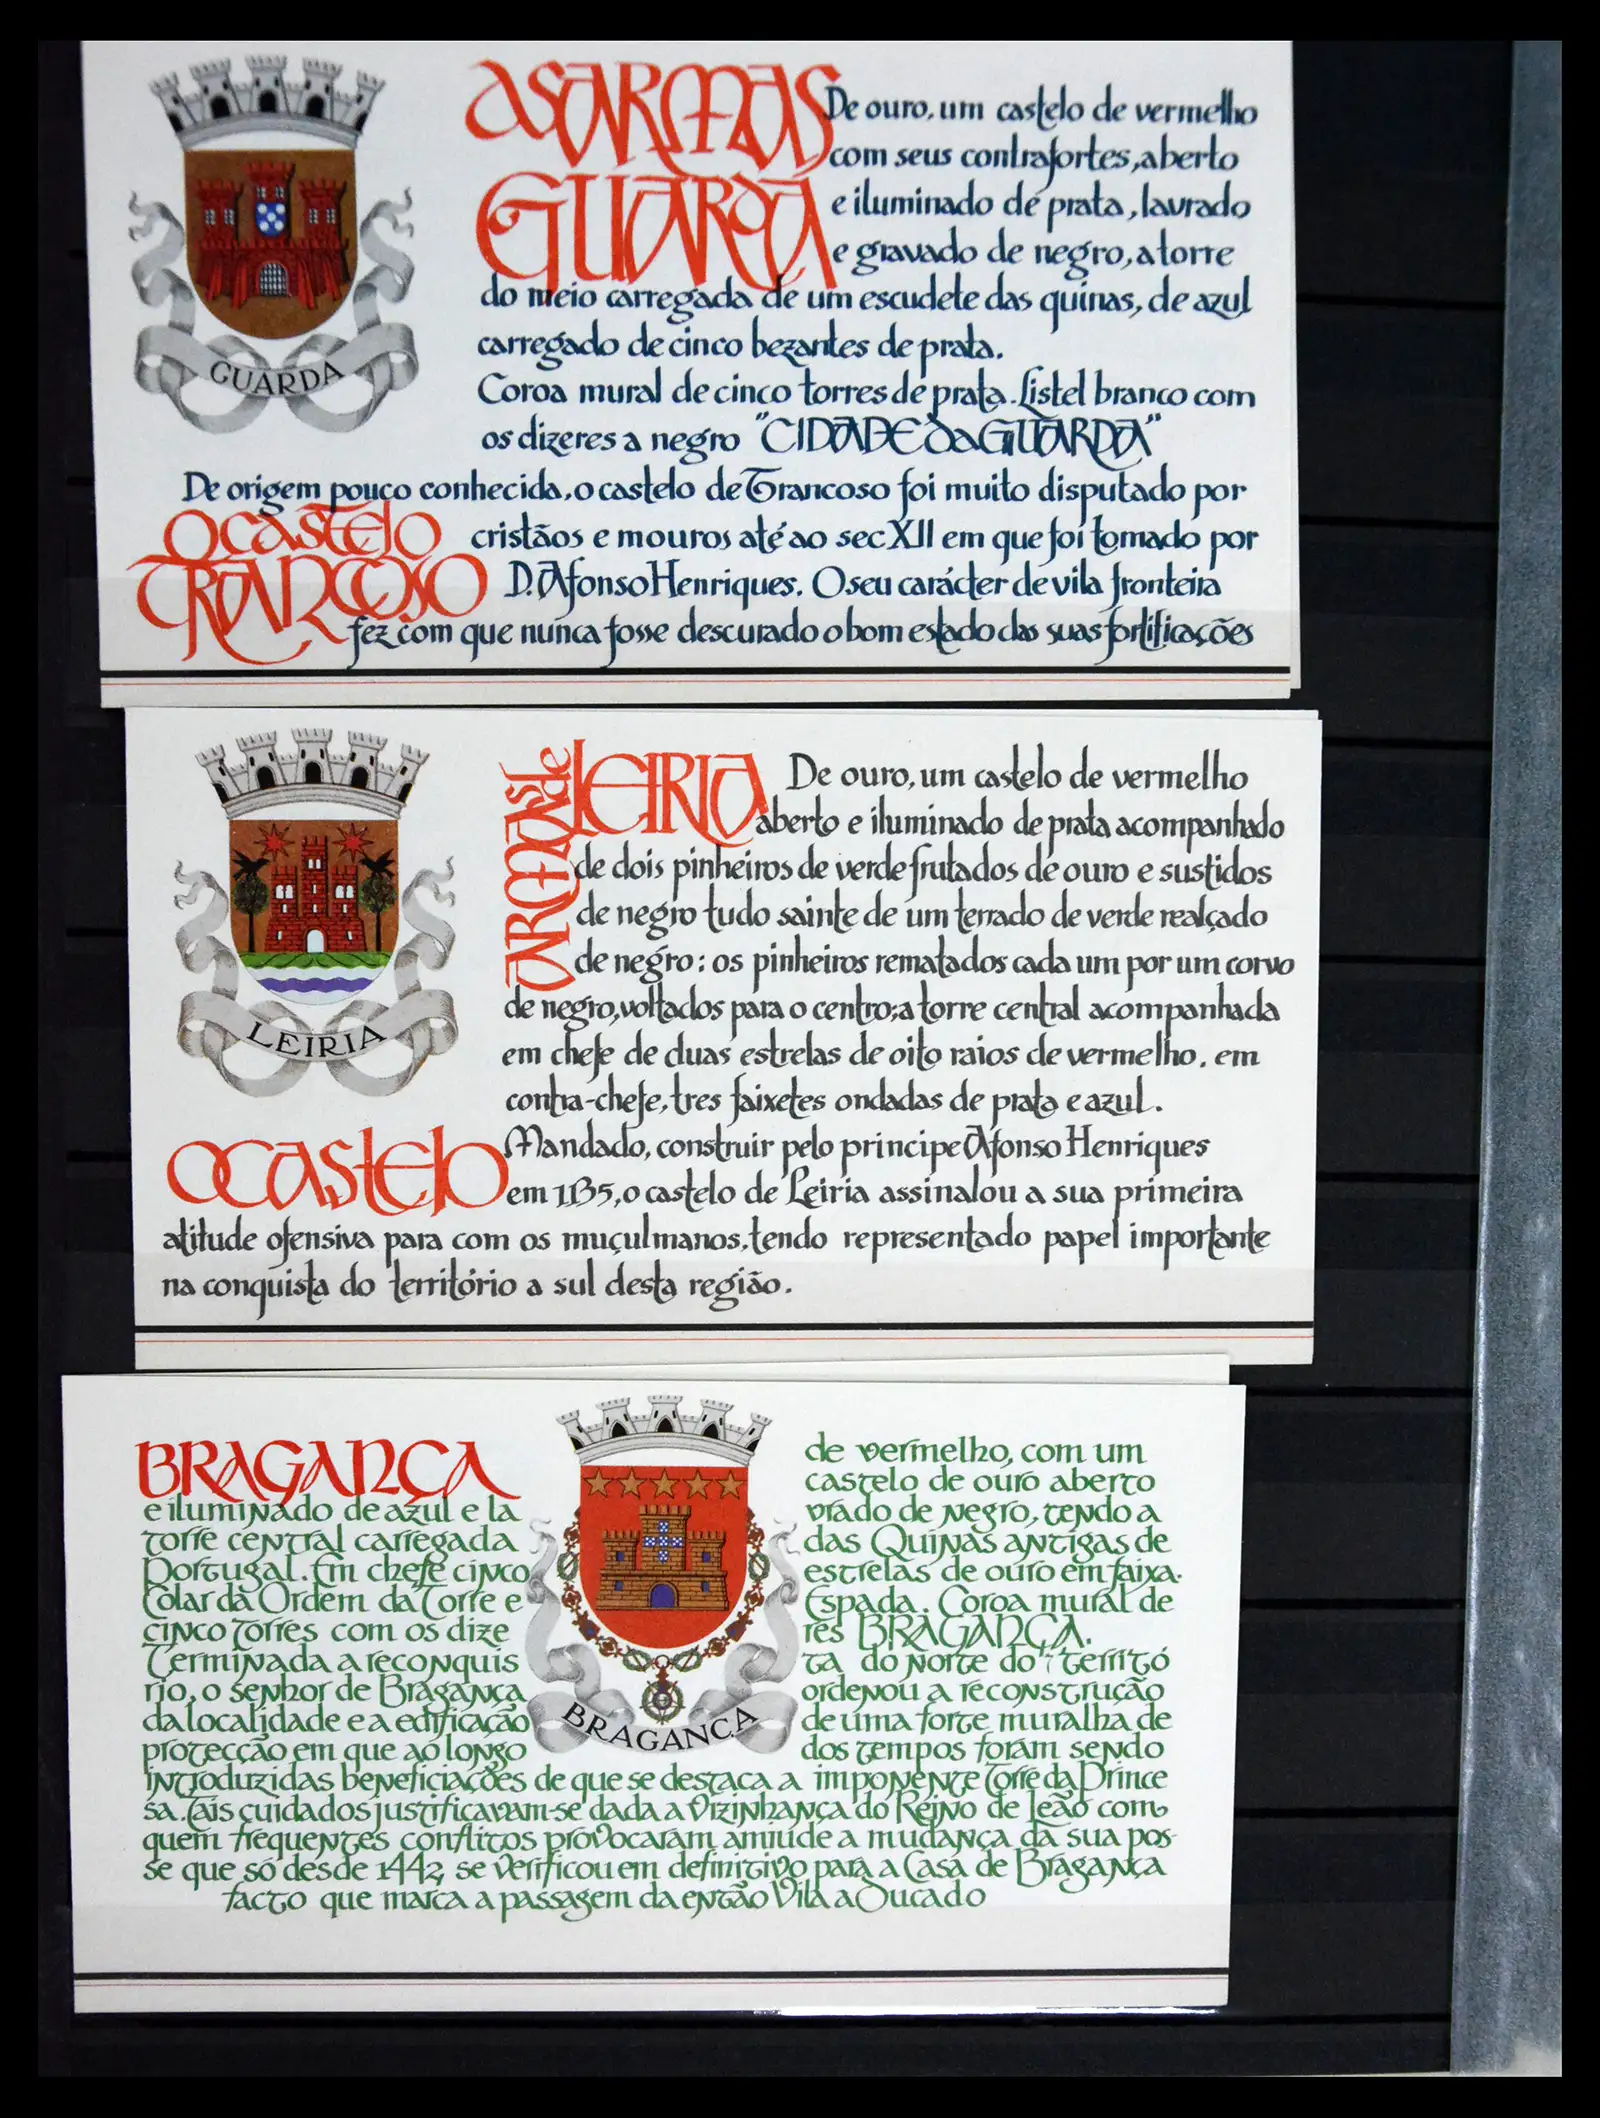 AS ARMAS
GUARDA
De ouro, um castelo de vermelho
com seus contrafortes, aberto
e iluminado de prata, lavrado
e gravado de negro, a torre
do meio carregada de um escudete das quinas, de azul
carregado de cinco bezantes de prata.
Coroa mural de cinco torres de prata. Listel branco com
os dizeres a negro "CIDADE da GUARDA"
GUARDA
O CASTELO
TRANCOSO
De origem pouco conhecida, o castelo de Trancoso foi muito disputado por
cristãos e mouros até ao sec XII em que foi tomado por
D. Afonso Henriques. O seu carácter de vila fronteira
fez com que nunca fosse descurado o bom estado das suas fortificações
ARMAS de
LEIRIA
De ouro, um castelo de vermelho
aberto e iluminado de prata acompanhado
de dois pinheiros de verde frutados de ouro e sustidos
de negro tudo sainte de um terrado de verde realçado
de negro: os pinheiros rematados cada um por um corvo
de negro, voltados para o centro; a torre central acompanhada
em chefe de duas estrelas de oito raios de vermelho, em
contra-chefe, tres faixetes ondadas de prata e azul.
LEIRIA
O CASTELO
Mandado, construir pelo principe Afonso Henriques
em 1135, o castelo de Leiria assinalou a sua primeira
atitude ofensiva para com os muçulmanos, tendo representado papel importante
na conquista do território a sul desta região.
BRAGANÇA de vermelho, com um
castelo de ouro aberto
e iluminado de azul e la vrado de negro, tendo a
torre central carregada das Quinas antigas de
Portugal. Em chefe cinco estrelas de ouro em faixa.
Colar da Ordem da Torre e Espada. Coroa mural de
cinco torres com os dize res BRAGANÇA.
Terminada a reconquis ta do norte do territó
rio, o senhor de Bragança ordenou a reconstrução
da localidade e a edificação de uma forte muralha de
protecção em que ao longo dos tempos foram sendo
introduzidas beneficiações de que se destaca a imponente Torre da Prince
sa. Tais cuidados justificavam-se dada a vizinhança do Reino de Leão com
quem frequentes conflitos provocaram amiúde a mudança da sua pos-
se que só desde 1442 se verificou em definitivo para a Casa de Bragança
facto que marca a passagem da então Vila a Ducado
BRAGANÇA